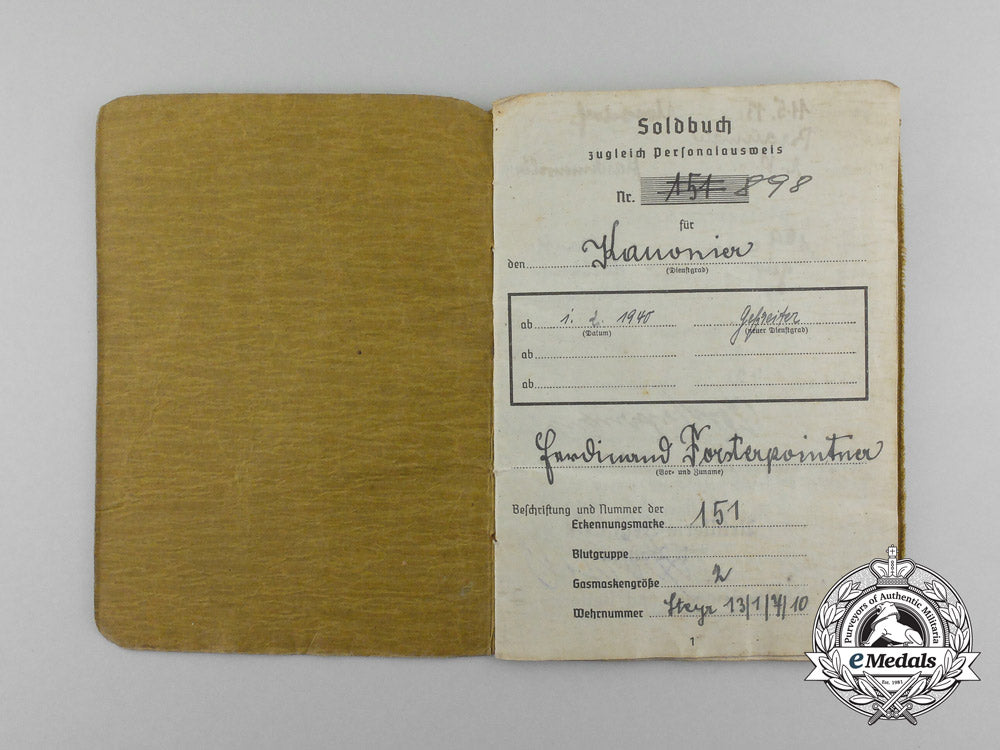 Soldbuch
zugleich Personalausweis
Nr. 151 898
für
den Kanonier
(Dienstgrad)
ab 1. 2. 1940 Gefreiter
(Datum) (neuer Dienstgrad)
ab
ab
Ferdinand Forsterpointner
(Vor- und Zuname)
Beschriftung und Nummer der
Erkennungsmarke 151
Blutgruppe
Gasmaskengröße 2
Wehrnummer Steyr 13/1/7/10
1
Purveyors of Authentic Militaria
eMedals
Est. 1981